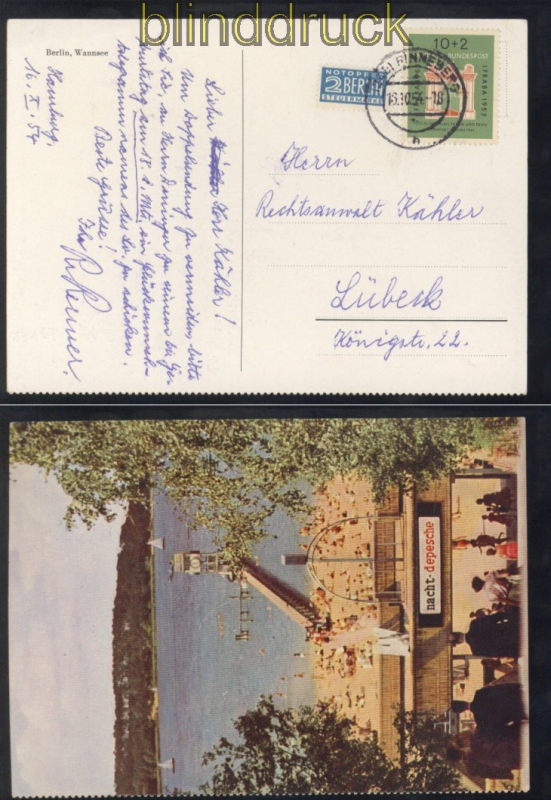 blinddruck
Berlin, Wannsee
Hamburg,
16. X. 54
Lieber Herr Kähler!
Um Doppelsendung zu vermeiden, bitte
ich Sie, an Herrn zu einem
am 18. d. Mts. ein Glückwunsch-
telegramm namens des zu schicken.
Beste Grüsse!
Ihr
NOTOPFER
2 BERLIN
STEUERMARKE
10+2
BUNDESPOST
IFRABA 1953
PINNEBERG
15.10.54-18
b
Herrn
Rechtsanwalt Kähler
Lübeck
Königstr. 22.
nacht-depesche